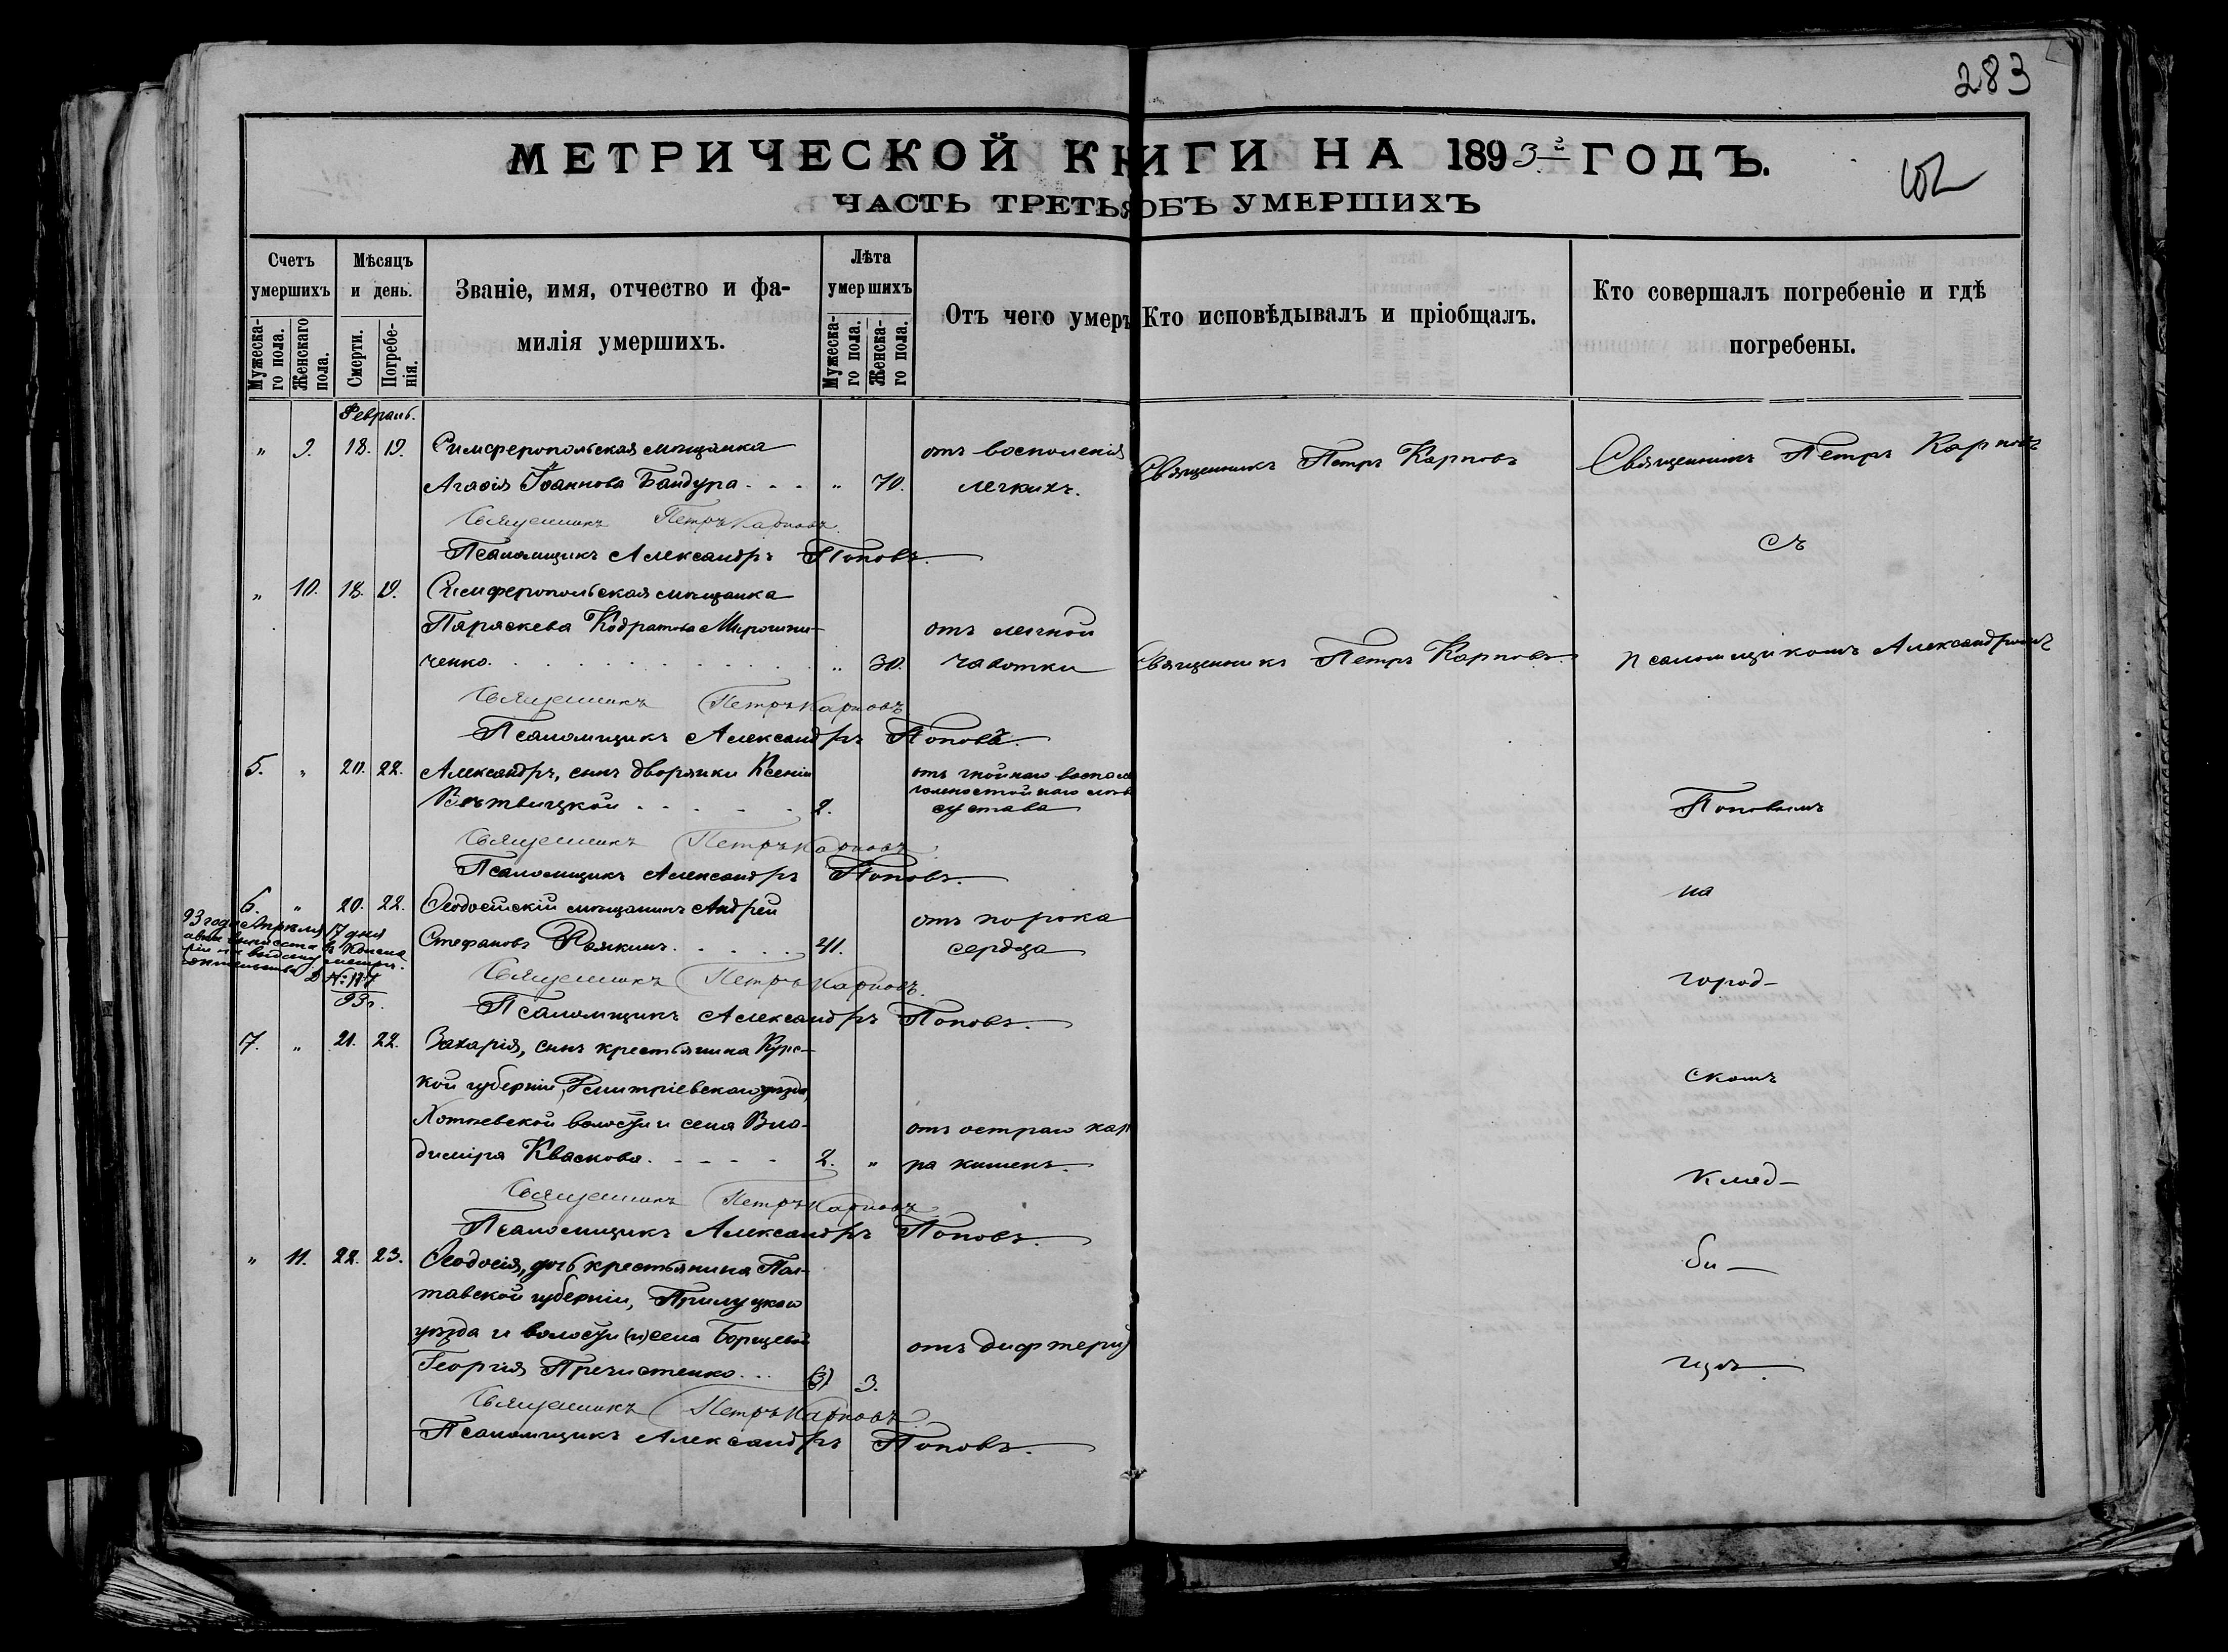 283
МЕТРИЧЕСКОЙ КНИГИ НА 1893й ГОДЪ.
ЧАСТЬ ТРЕТЬЯ ОБЪ УМЕРШИХЪ
Счетъ умершихъ
Мѣсяцъ и день.
Званіе, имя, отчество и фамилія умершихъ.
Лѣта умершихъ
Отъ чего умеръ
Кто исповѣдывалъ и пріобщалъ.
Кто совершалъ погребеніе и гдѣ погребены.
Мужескаго пола.
Женскаго пола.
Смерти.
Погребенія.
Мужескаго пола.
Женскаго пола.
Февраль.
" 9. 18. 19. Симферопольская мѣщанка отъ воспаленія
Агафія Іоаннова Бандура " 70. легкихъ. Священникъ Петръ Карповъ Священникъ Петръ Карповъ
Священникъ Петръ Карповъ
Псаломщикъ Александръ Поповъ. съ
" 10. 18. 19. Симферопольская мѣщанка
Параскева Кодратова Мирошни- отъ легочной
ченко. " 30. чахотки Священникъ Петръ Карповъ. псаломщикомъ Александромъ
Священникъ Петръ Карповъ
Псаломщикъ Александръ Поповъ.
5. " 20. 22. Александръ, сынъ дворянки Ксеніи отъ гнойнаго
2. сустава Поповымъ
Священникъ Петръ Карповъ
Псаломщикъ Александръ Поповъ.
6. " 20. 22. Ѳеодосійскій мѣщанинъ Андрей отъ порока на
93 года Апрѣля 17 дня
Стефановъ 41. сердца
№ 177
93 г.
Священникъ Петръ Карповъ. город-
Псаломщикъ Александръ Поповъ.
7. " 21. 22. Захарія, сынъ крестьянина Курс-
кой губерніи, Дмитріевскаго уѣзда, скомъ
волости и села Вла- отъ остраго
диміра Кваскова. 2. " ра кишекъ. клад-
Священникъ Петръ Карповъ
Псаломщикъ Александръ Поповъ.
" 11. 22. 23. Ѳеодосія, дочь крестьянина Пол- би-
тавской губерніи, Прилуцкаго
уѣзда и волости (и) села отъ дифтерит
Георгія Пречистенко. (3) 3. щѣ.
Священникъ Петръ Карповъ
Псаломщикъ Александръ Поповъ.